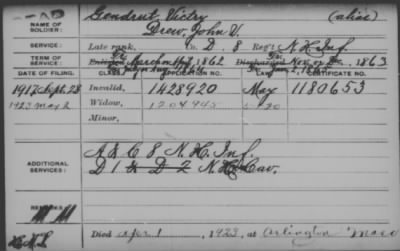 NAME OF SOLDIER:
Gendrut Victry (alias)
Drew, John V.
SERVICE:
Late rank, Co. D. 8 Reg't N.H. Inf.
TERM OF SERVICE:
Enlisted March 1862 Discharged Nov 1863
DATE OF FILING. CLASS. APPLICATION NO. LAW. CERTIFICATE NO.
1917 Sept. 28 Invalid, 1428920 May 1180653
1923 May 2 Widow, 1204945
Minor,
ADDITIONAL SERVICES:
A & C 8 N.H. Inf.
D 1 & D 2 N.H. Cav.
REMARKS:
Died Apr. 1, 1923, at Arlington Mass